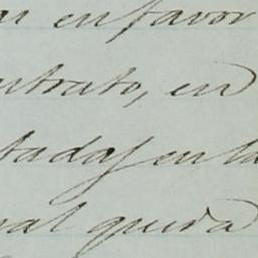 en favor
ntrato, en
tadas en la
nal queda